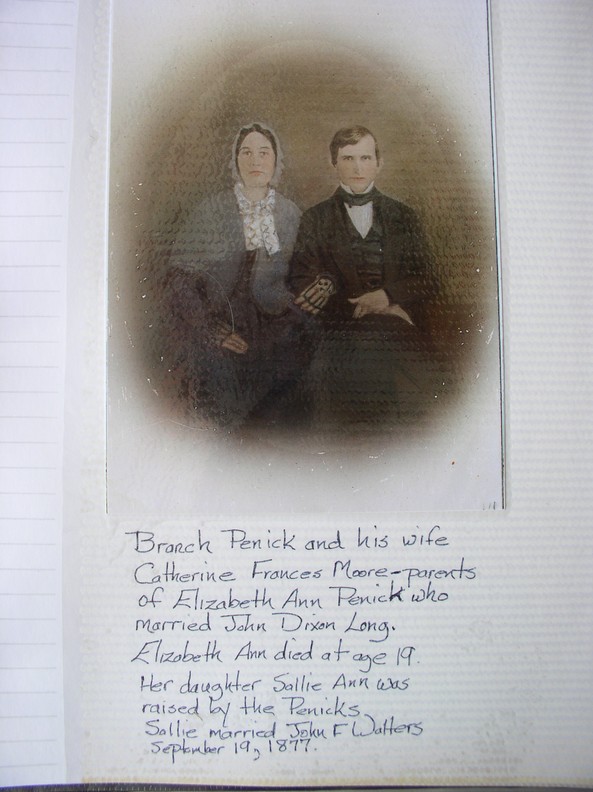 Branch Penick and his wife
Catherine Frances Moore-parents
of Elizabeth Ann Penick who
married John Dixon Long.
Elizabeth Ann died at age 19.
Her daughter Sallie Ann was
raised by the Penicks
Sallie married John F Watters
September 19, 1877.